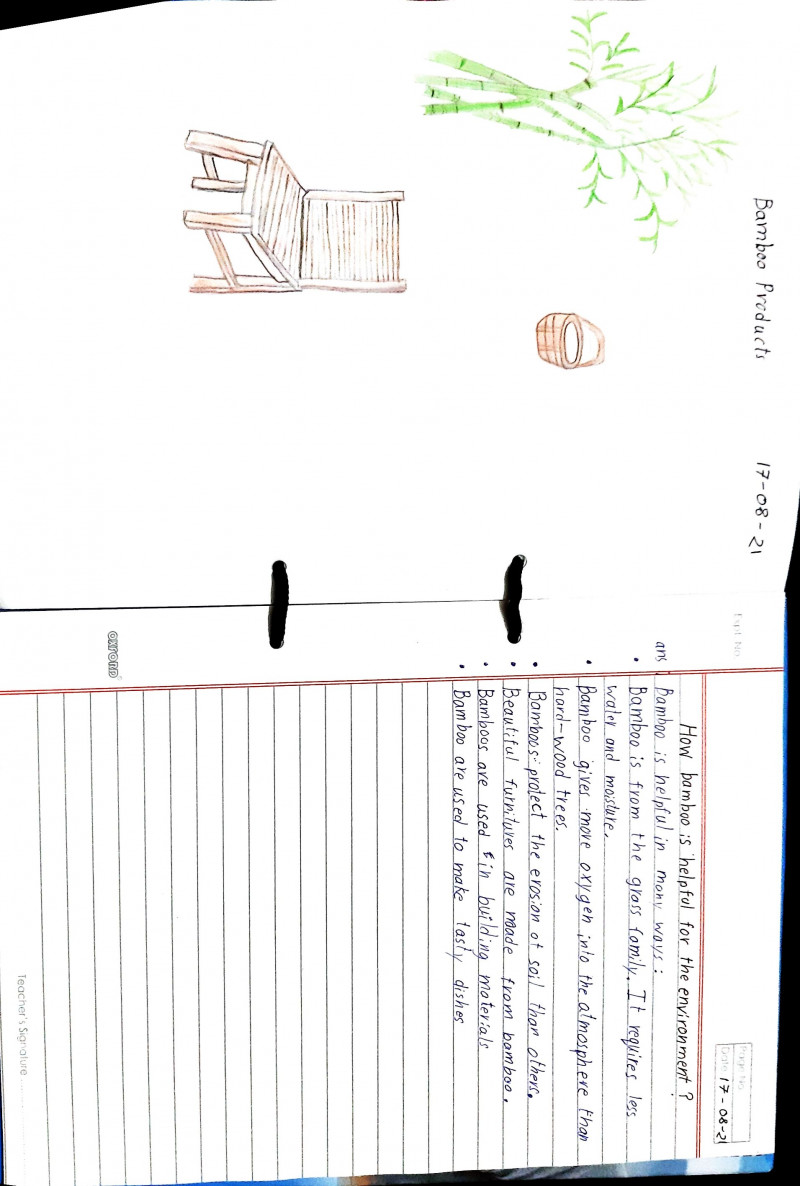 Bamboo Products
17-08-21
Expt. No.
Page No.
Date 17-08-21
How bamboo is helpful for the environment?
ans Bamboo is helpful in many ways:
• Bamboo is from the grass family. It requires less
water and moisture.
• Bamboo gives more oxygen into the atmosphere than
hard-wood trees.
• Bamboos protect the erosion of soil than others.
• Beautiful furnitures are made from bamboo.
• Bamboos are used in building materials
• Bamboo are used to make tasty dishes
OXFORD
Teacher's Signature